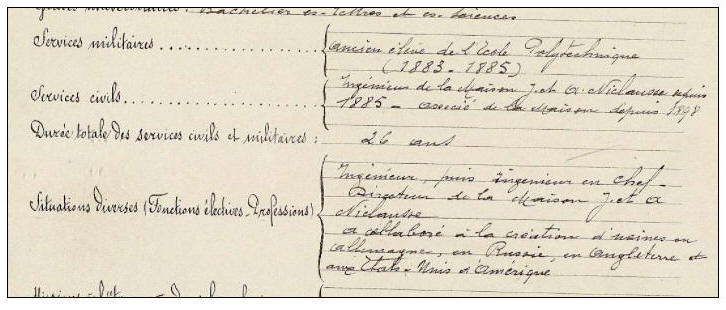 Grades universitaires : Bachelier es-lettres et es-sciences
Services militaires ancien élève de l'Ecole Polytechnique
(1883-1885)
Ingénieur de la Maison J. et A. Niclausse depuis
Services civils 1885 - associé de la Maison depuis 1898
Durée totale des services civils et militaires : 26 ans
Ingénieur, puis Ingénieur en chef -
Directeur de la Maison J. et A
Situations diverses (Fonctions électives - Professions) Niclausse
a collaboré à la création d'usines en
Allemagne, en Russie, en Angleterre et
aux Etats-Unis d'Amérique